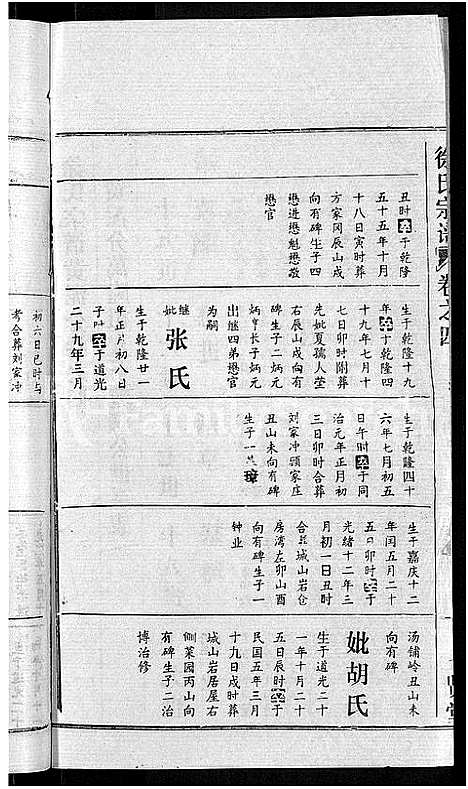 徐氏宗谱
卷之四
丑时卒于乾隆
五十五年十月
十八日寅时葬
方家冈辰山戌
向有碑生子四
懋进懋魁懋敬
懋官
生于乾隆十九
年卒于乾隆四
十九年七月十
七日卯时附葬
先妣夏孺人茔
右辰山戌向有
碑生子二炳元
炳亨长子炳元
出继四弟懋官
为嗣
继妣张氏
生于乾隆廿一
年正月初八日
子时卒于道光
二十九年三月
初六日巳时与
考合葬刘家冲
生于乾隆四十
六年七月初五
日午时卒于同
治元年正月初
三日卯时合葬
刘家冲头家庄
丑山未向有碑
生子一
生于嘉庆十二
年闰五月二十
五日卯时卒于
光绪十二年三
月初一日丑时
合葬城山岩仓
房湾左卯山酉
向有碑生子一
钟业
汤铺岭丑山未
向有碑
妣胡氏
生于道光二十
一年十月二十
五日辰时卒于
民国五年三月
十九日戌时葬
城山岩居屋右
侧菜园丙山向
有碑生子二治
博治修